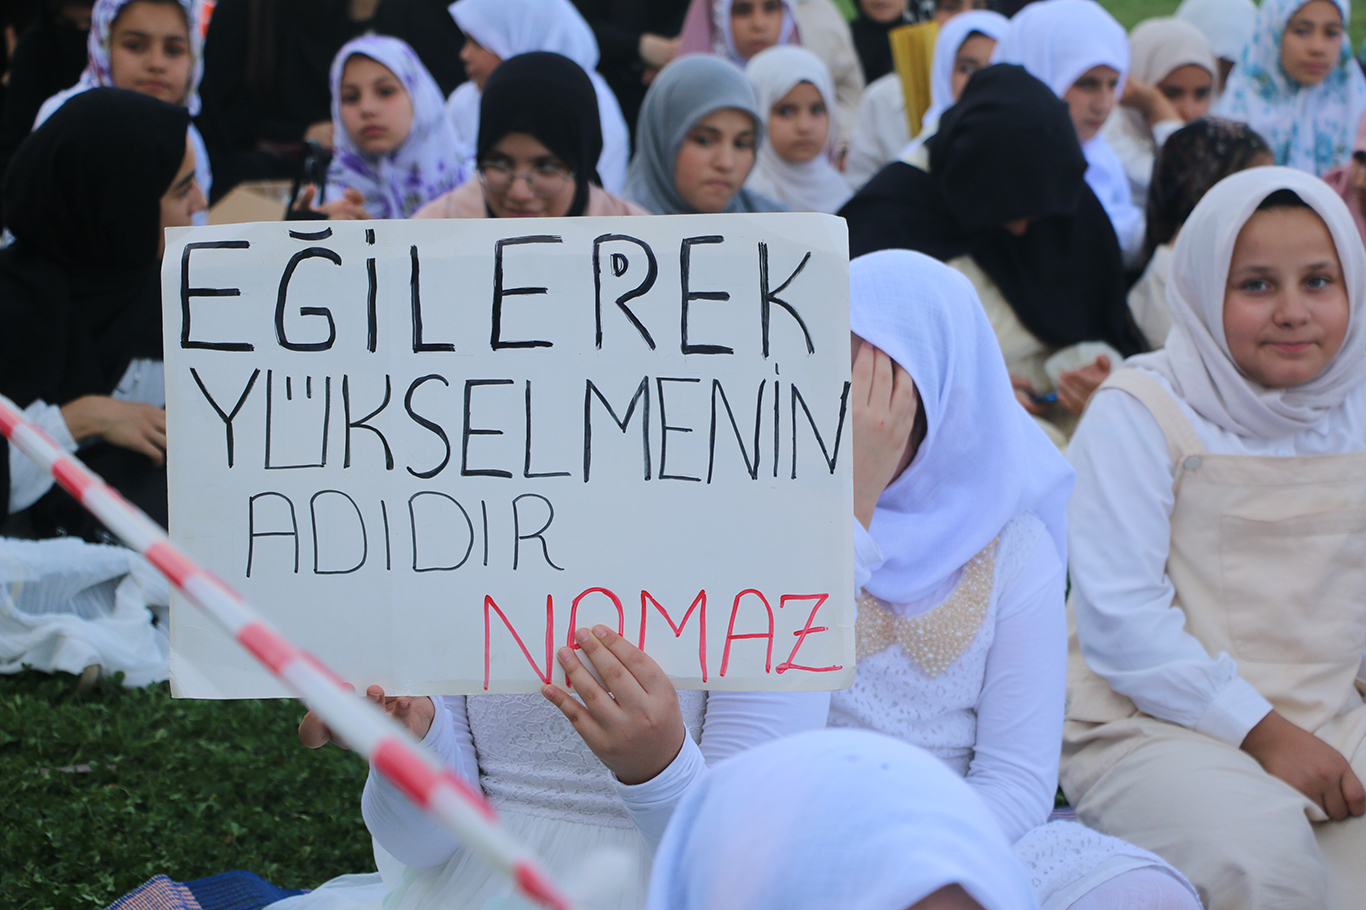 EĞİLEREK
YÜKSELMENİN
ADIDIR
NAMAZ